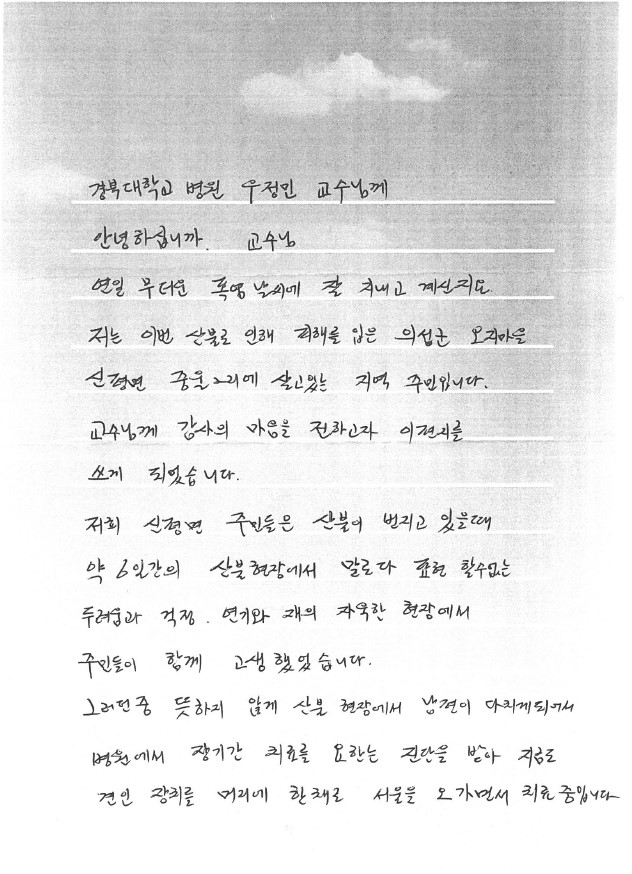 경북대학교 병원 우정민 교수님께
안녕하십니까. 교수님
연일 무더운 폭염 날씨에 잘 지내고 계신지요.
저는 이번 산불로 인해 피해를 입은 의성군 오지마을
신평면 중율2리에 살고있는 지역 주민입니다.
교수님께 감사의 마음을 전하고자 이편지를
쓰게 되었습니다.
저희 신평면 주민들은 산불이 번지고 있을때
약 6일간의 산불현장에서 말로다 표현 할수없는
두려움과 걱정. 연기와 재의 자욱한 현장에서
주민들이 함께 고생했었습니다.
그러던중 뜻하지 않게 산불 현장에서 남편이 다치게되어서
병원에서 장기간 치료를 요한는 진단을 받아 지금도
견인 장치를 머리에 한채로 서울을 오가면서 치료중입니다